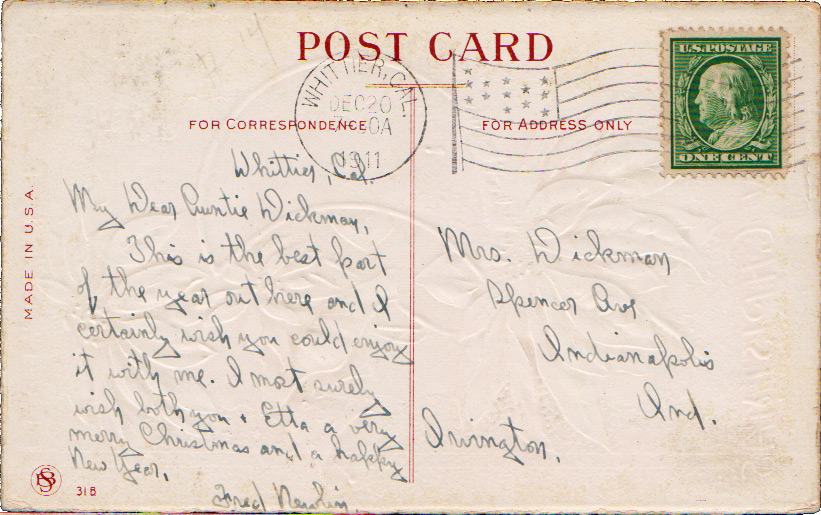 POST CARD
WHITTIER, CAL.
DEC 20
1911
U.S. POSTAGE
ONE CENT
FOR CORRESPONDENCE
FOR ADDRESS ONLY
MADE IN U.S.A.
Whittier, Cal.
My Dear Auntie Dickman,
This is the best part
of the year out here and I
certainly wish you could enjoy
it with me. I most surely
wish both you + Etta a very
merry Christmas and a happy
New Year,
Fred Newlin.
Mrs. Dickman
Spencer Ave
Indianapolis
Ind.
Irvington.
318